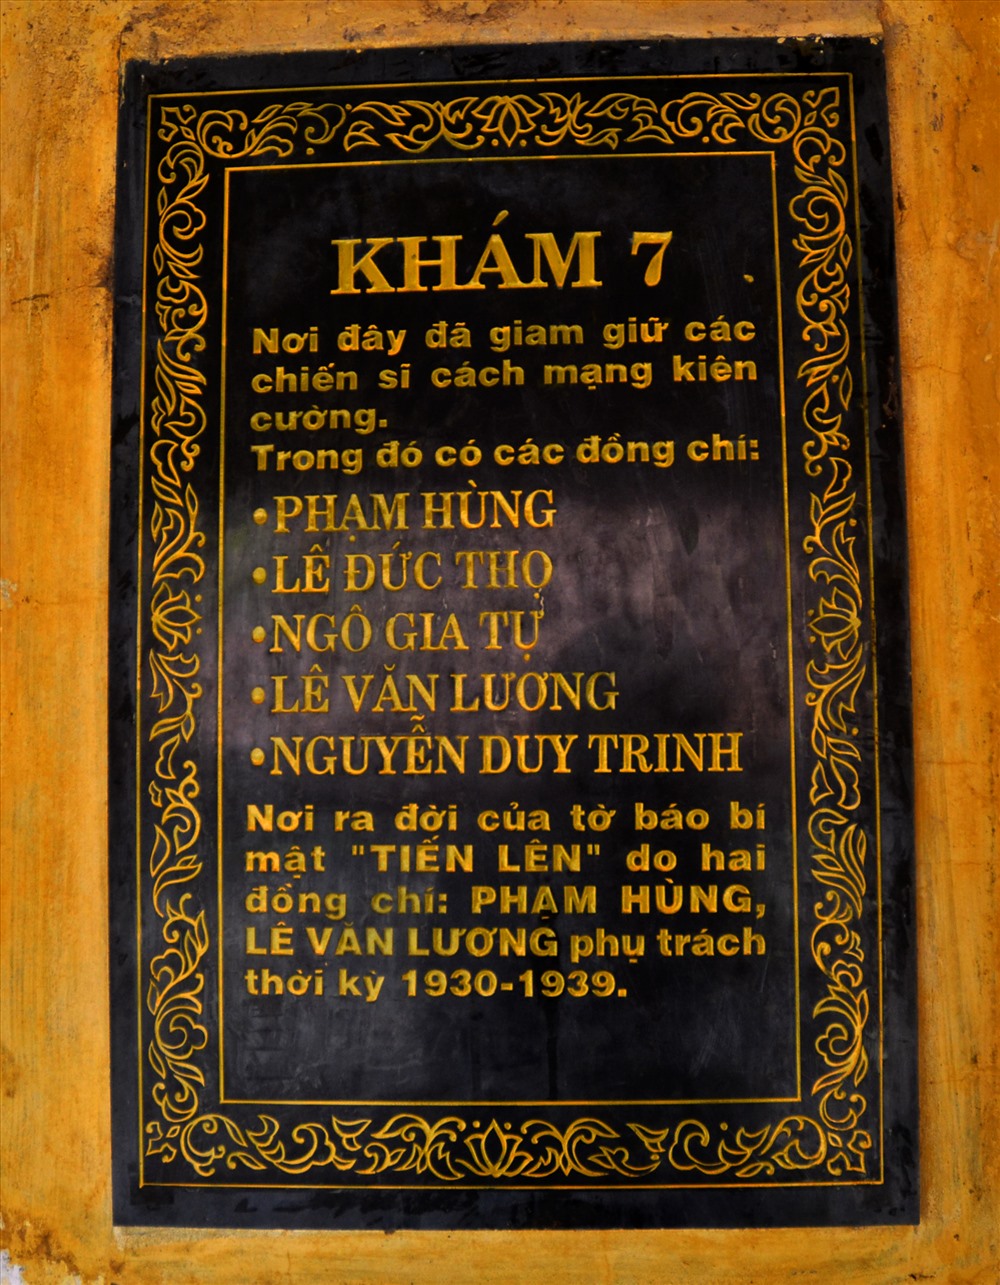 KHÁM 7
Nơi đây đã giam giữ các
chiến sĩ cách mạng kiên
cường.
Trong đó có các đồng chí:
•PHẠM HÙNG
•LÊ ĐỨC THỌ
•NGÔ GIA TỰ
•LÊ VĂN LƯƠNG
•NGUYỄN DUY TRINH
Nơi ra đời của tờ báo bí
mật "TIẾN LÊN" do hai
đồng chí: PHẠM HÙNG,
LÊ VĂN LƯƠNG phụ trách
thời kỳ 1930-1939.